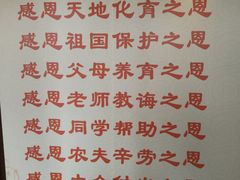 感恩天地化育之恩
感恩祖国保护之恩
感恩父母养育之恩
感恩老师教诲之恩
感恩同学帮助之恩
感恩农夫辛劳之恩
感恩大众